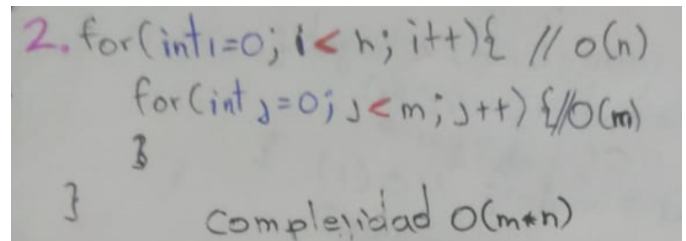 2. for(int i=0; i < n; i++){ // O(n)
for(int j=0; j < m; j++) {//O(m)
}
}
Complejidad O(m*n)